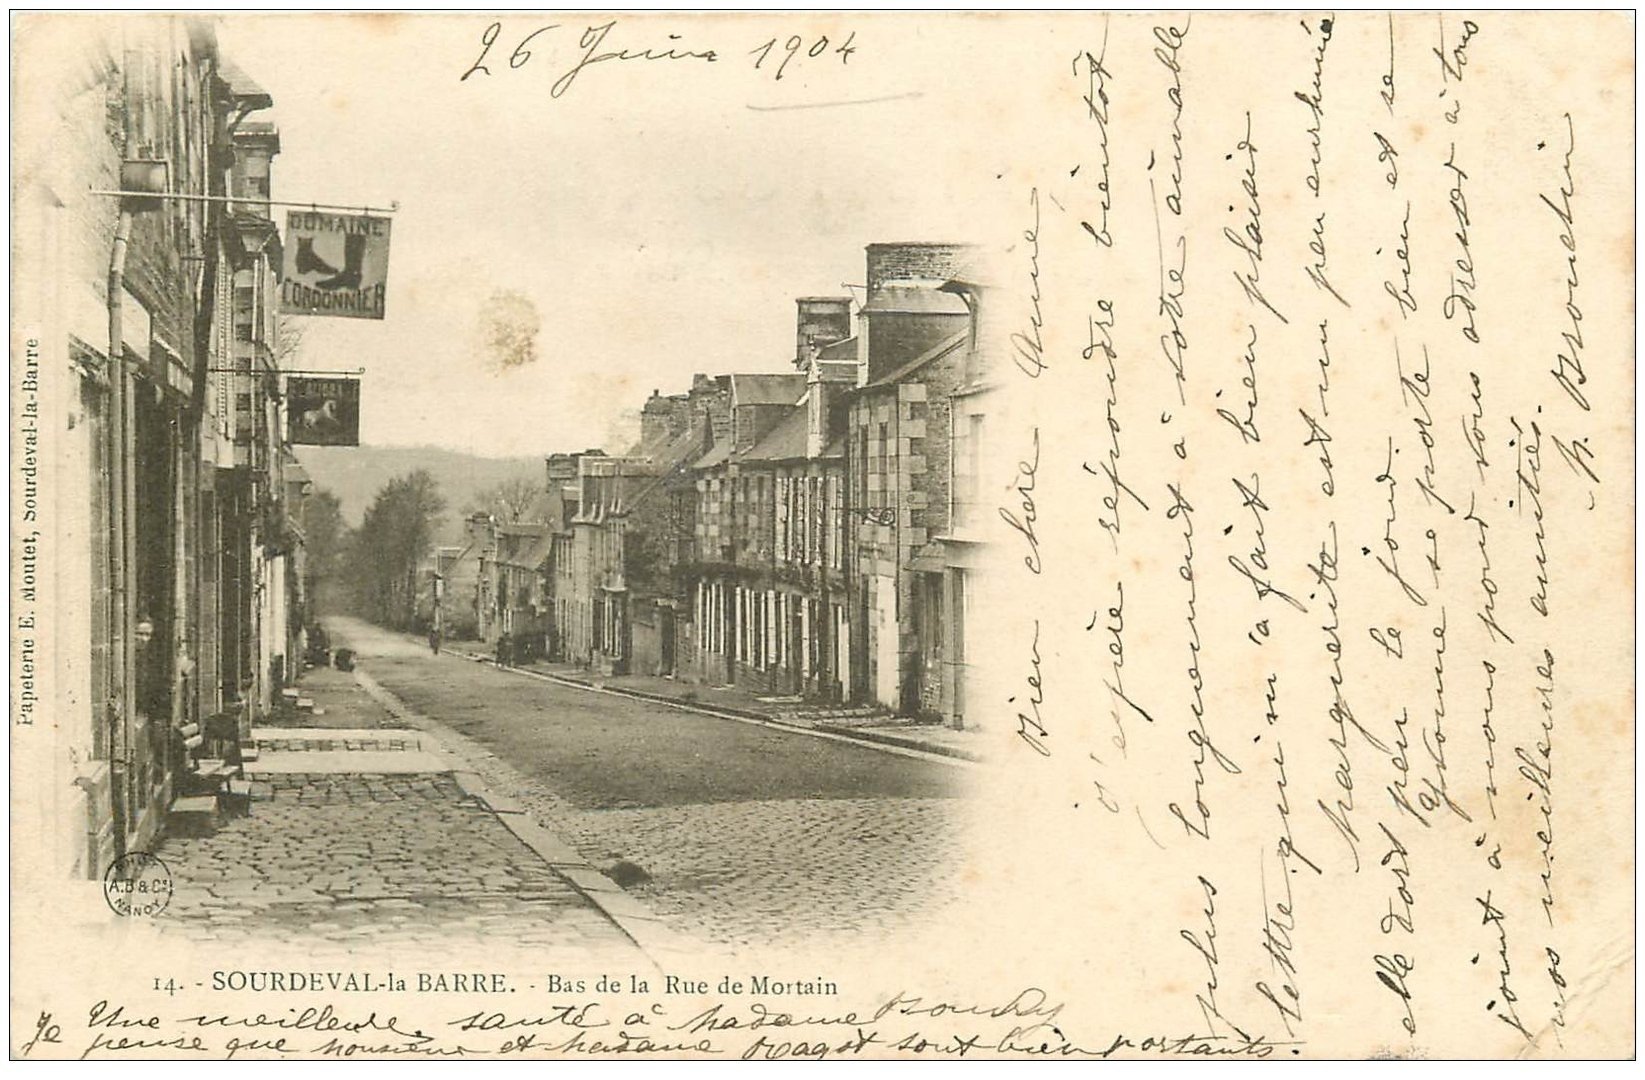 26 Juin 1904
DOMAINE
CORDONNIER
Papeterie E. Moutet, Sourdeval-la-Barre
A.B & Cie
NANCY
14. - SOURDEVAL-la BARRE. - Bas de la Rue de Mortain
Bien chère Amie
J'espère répondre bientôt
plus longuement à votre aimable
lettre qui m'a fait bien plaisir
Marguerite est un peu enrhumée
elle dort peu le jour.
Yvonne se porte bien et se
joint à nous pour vous adresser à tous
nos meilleures amitiés.
Une meilleure santé à Madame
Je pense que monsieur et Madame Ragot sont bien portants.